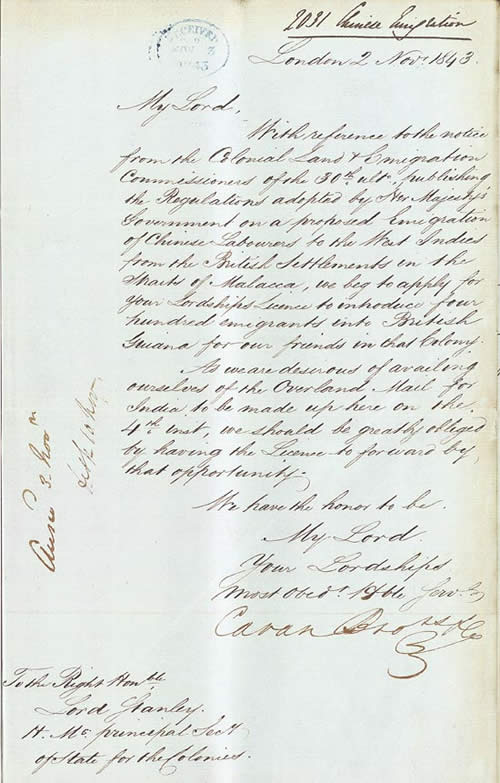 2031 Chinese Emigration
RECEIVED
London 2 Novr. 1843.
My Lord,
With reference to the notice
from the Colonial Land & Emigration
Commissioners of the 30th. ulto. publishing
the Regulations adopted by Her Majesty's
Government on a proposed Emigration
of Chinese Labourers to the West Indies
from the British Settlements in the
Straits of Malacca, we beg to apply for
Your Lordships Licence to introduce four
hundred emigrants into British
Guiana for our friends in that Colony.
As we are desirous of availing
ourselves of the Overland Mail for
India to be made up here on the
4th. inst, we should be greatly obliged
by having the Licence to forward by
that opportunity.
We have the honor to be.
My Lord.
Your Lordships
most Obedt. Hble Servts
Cavan Brors & Co
Ansd 3. Novr
To the Right Honble.
Lord Stanley.
H. Ms. principal Secy
of State for the Colonies.